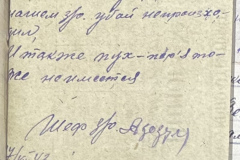 нагием гро. убой непроизхо-
дил,
И также пух-пер'я то-
же не имеется
Шеф гро.